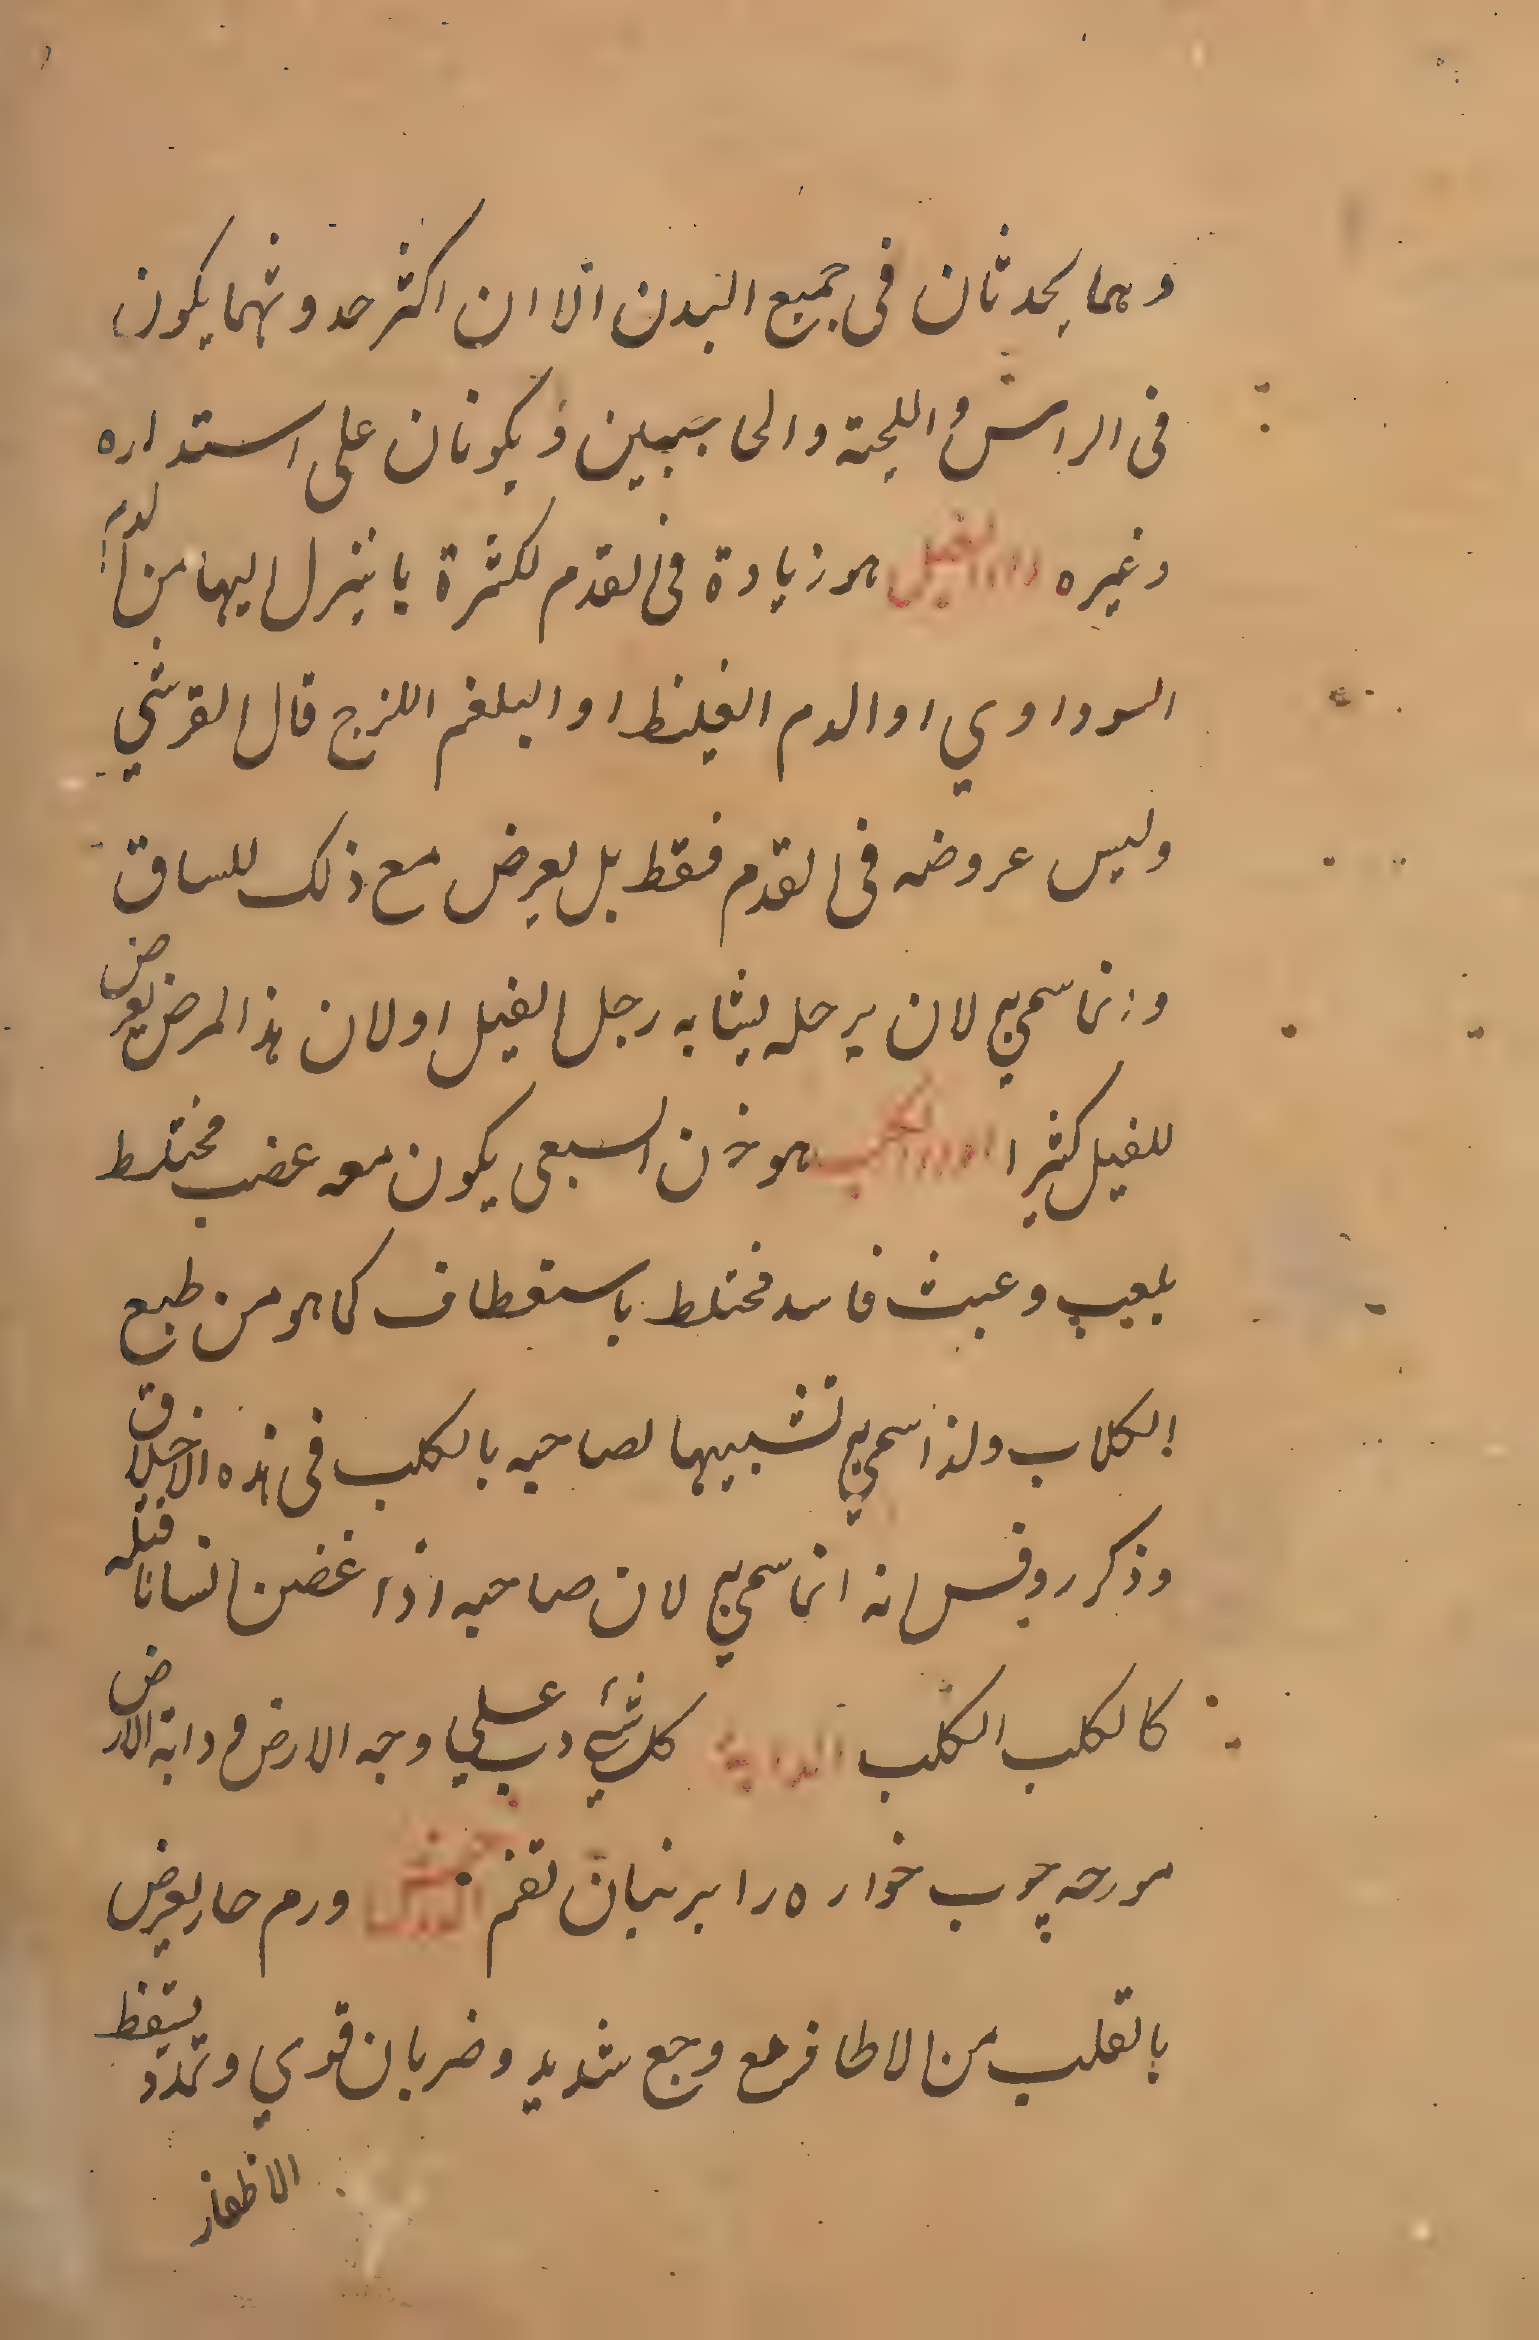 وهما يحدثان فى جميع البدن الا ان اكثر حدوثهما يكون
فى الراس و اللحية والحاجبين و يكونان على استداره
وغيره داء الفيل هو زيادة فى القدم لكثرة ما ينزل اليها من الدم
السوداوي او الدم الغليظ او البلغم اللزج قال القرشي
وليس عروضه فى القدم فقط بل يعرض مع ذلك للساق
وانما سمي به لان رجله يشابه رجل الفيل او لان هذا المرض يعرض
للفيل كثيرا داء الكلب هو جنون السبعى يكون معه غضب مختلط
بلعب وعبث فاسد مختلط باستعطاف كما هو من طبع
الكلاب ولذا سمي به تشبيها لصاحبه بالكلب فى هذه الاخلاق
وذكر روفس انه انما سمي به لان صاحبه اذا عض انسانا قتله
كالكلب الكلب الدابة كل شيء دب علي وجه الارض و دابة الارض
مورچه چوب خواره را برنبان تغم الداحس ورم حار يعرض
بالقلب من الاظافر مع وجع شديد وضربان قوي وتمدد يسقط
الاظفار